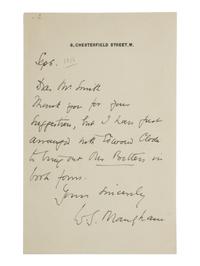 8, CHESTERFIELD STREET, W.
Sept.
Dear Mr Smith
Thank you for your
suggestion, but I have just
arranged with Edward Clode
to bring out in
book form.
Yours sincerely
W. S. Maugham